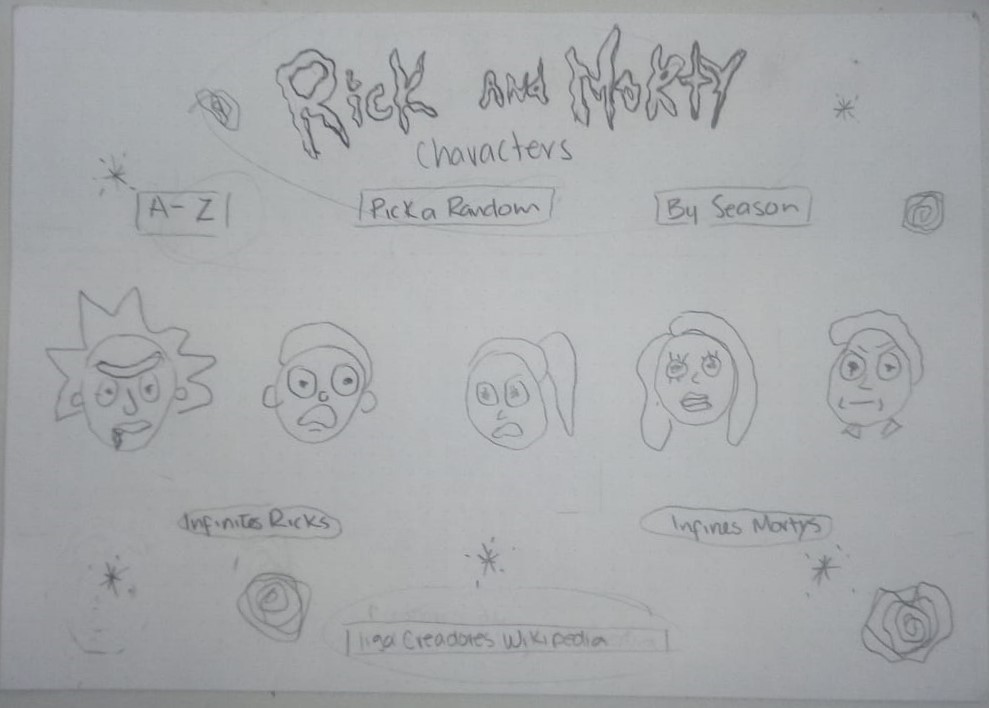 Rick AND MoRTY
Characters
A-Z
Pick a Random
By Season
Infinites Ricks
Infines Martys
liga Creadores Wikipedia